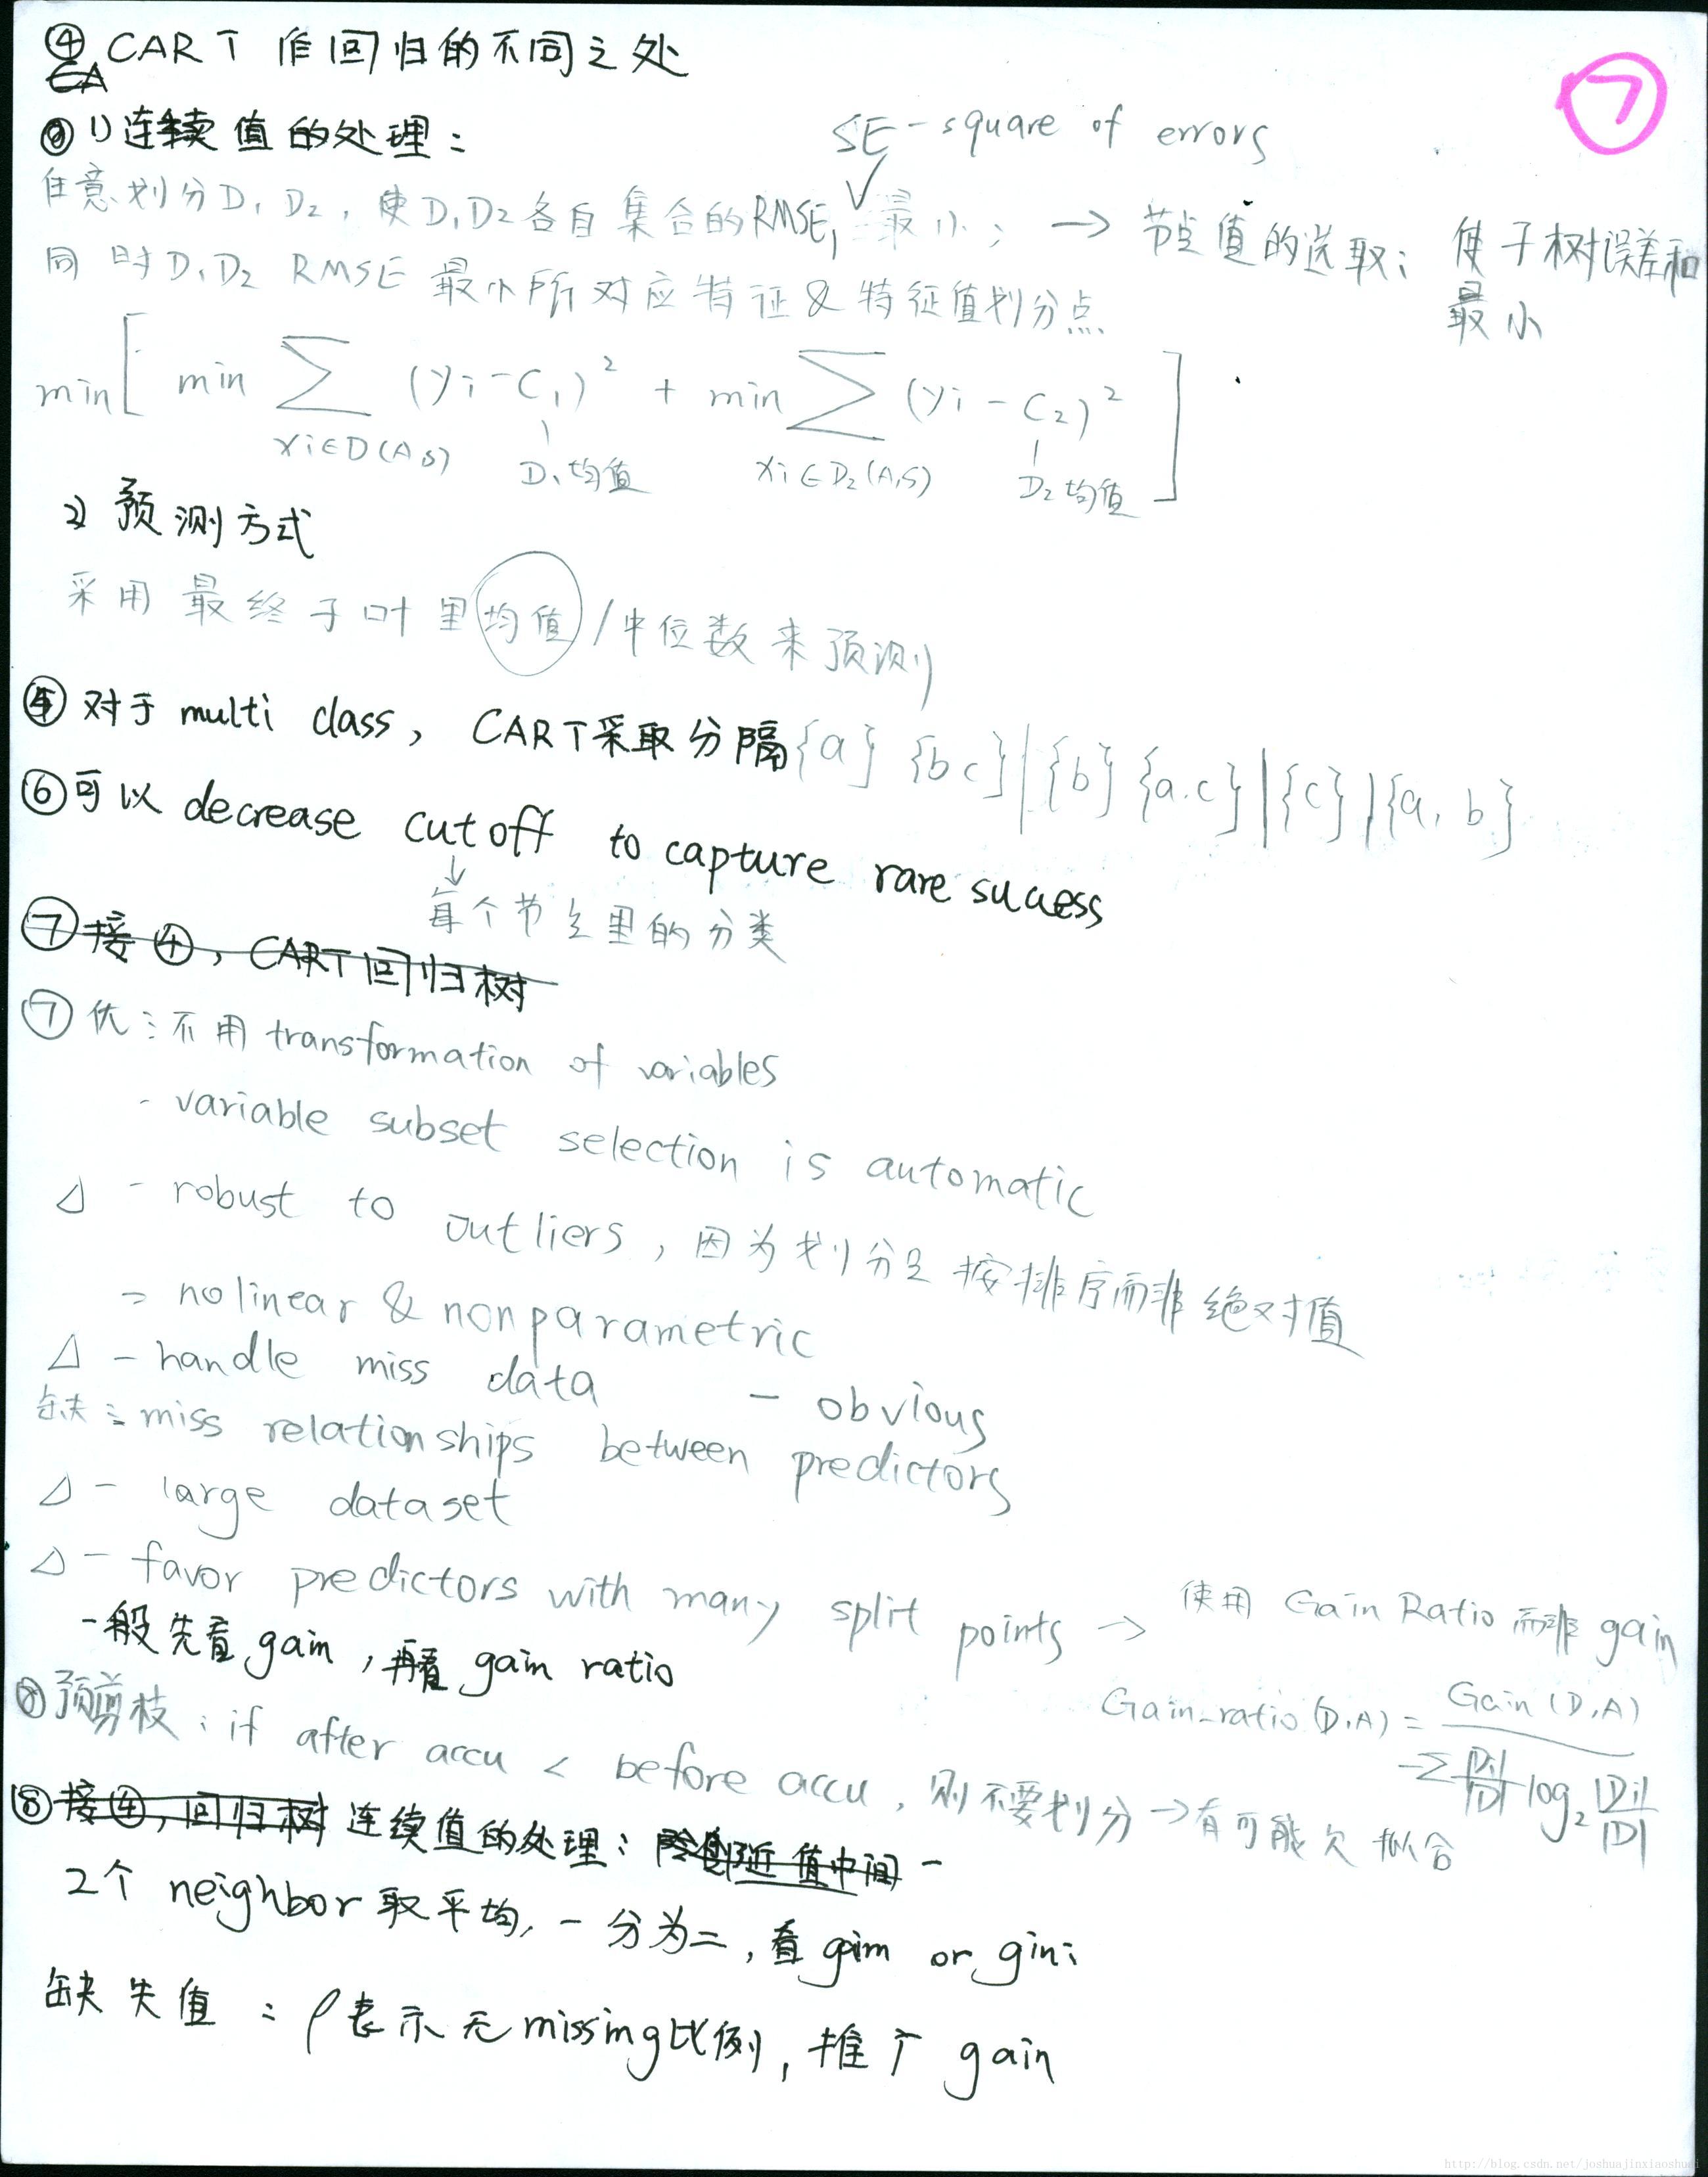 ④ CART 作回归的不同之处
⑦
CA
1) 连续值的处理：
SE - square of errors
任意划分D1 D2，使D1D2各自集合的RMSE, 最小； → 节点值的选取：使子树误差和最小
同时D1D2 RMSE 最小所对应特征&特征值划分点
min[ min ∑ (yi - C1)² + min ∑ (yi - C2)² ]
xi∈D(A,s) D1均值 xi∈D2(A,S) D2均值
2) 预测方式
采用最终子叶里均值/中位数来预测
⑤ 对于 multi class，CART采取分隔{a} {bc}|{b} {a.c}|{c}|{a, b}
⑥可以 decrease cutoff to capture rare sucess
↓
每个节点里的分类
⑦接④，CART回归树
⑦ 优：不用 transformation of variables
- variable subset selection is automatic
△ - robust to outliers，因为划分是按排序而非绝对值
- nolinear & nonparametric
△ - handle miss data - obvious
缺：miss relationships between predictors
△ - large dataset
△ - favor predictors with many split points → 使用 Gain Ratio 而非 gain
一般先看 gain，再看 gain ratio
Gain_ratio(D,A) = Gain(D,A) / -∑ |Di|/|D| log2 |Di|/|D|
⑧预剪枝：if after accu < before accu，则不要划分 → 有可能欠拟合
⑧接④，回归树 连续值的处理： 近值中间 -
2个 neighbor 取平均，一分为二，看 gain or gini
缺失值：ρ表示无missing比例，推广 gain
http://blog.csdn.net/joshuajinxiaoshuai